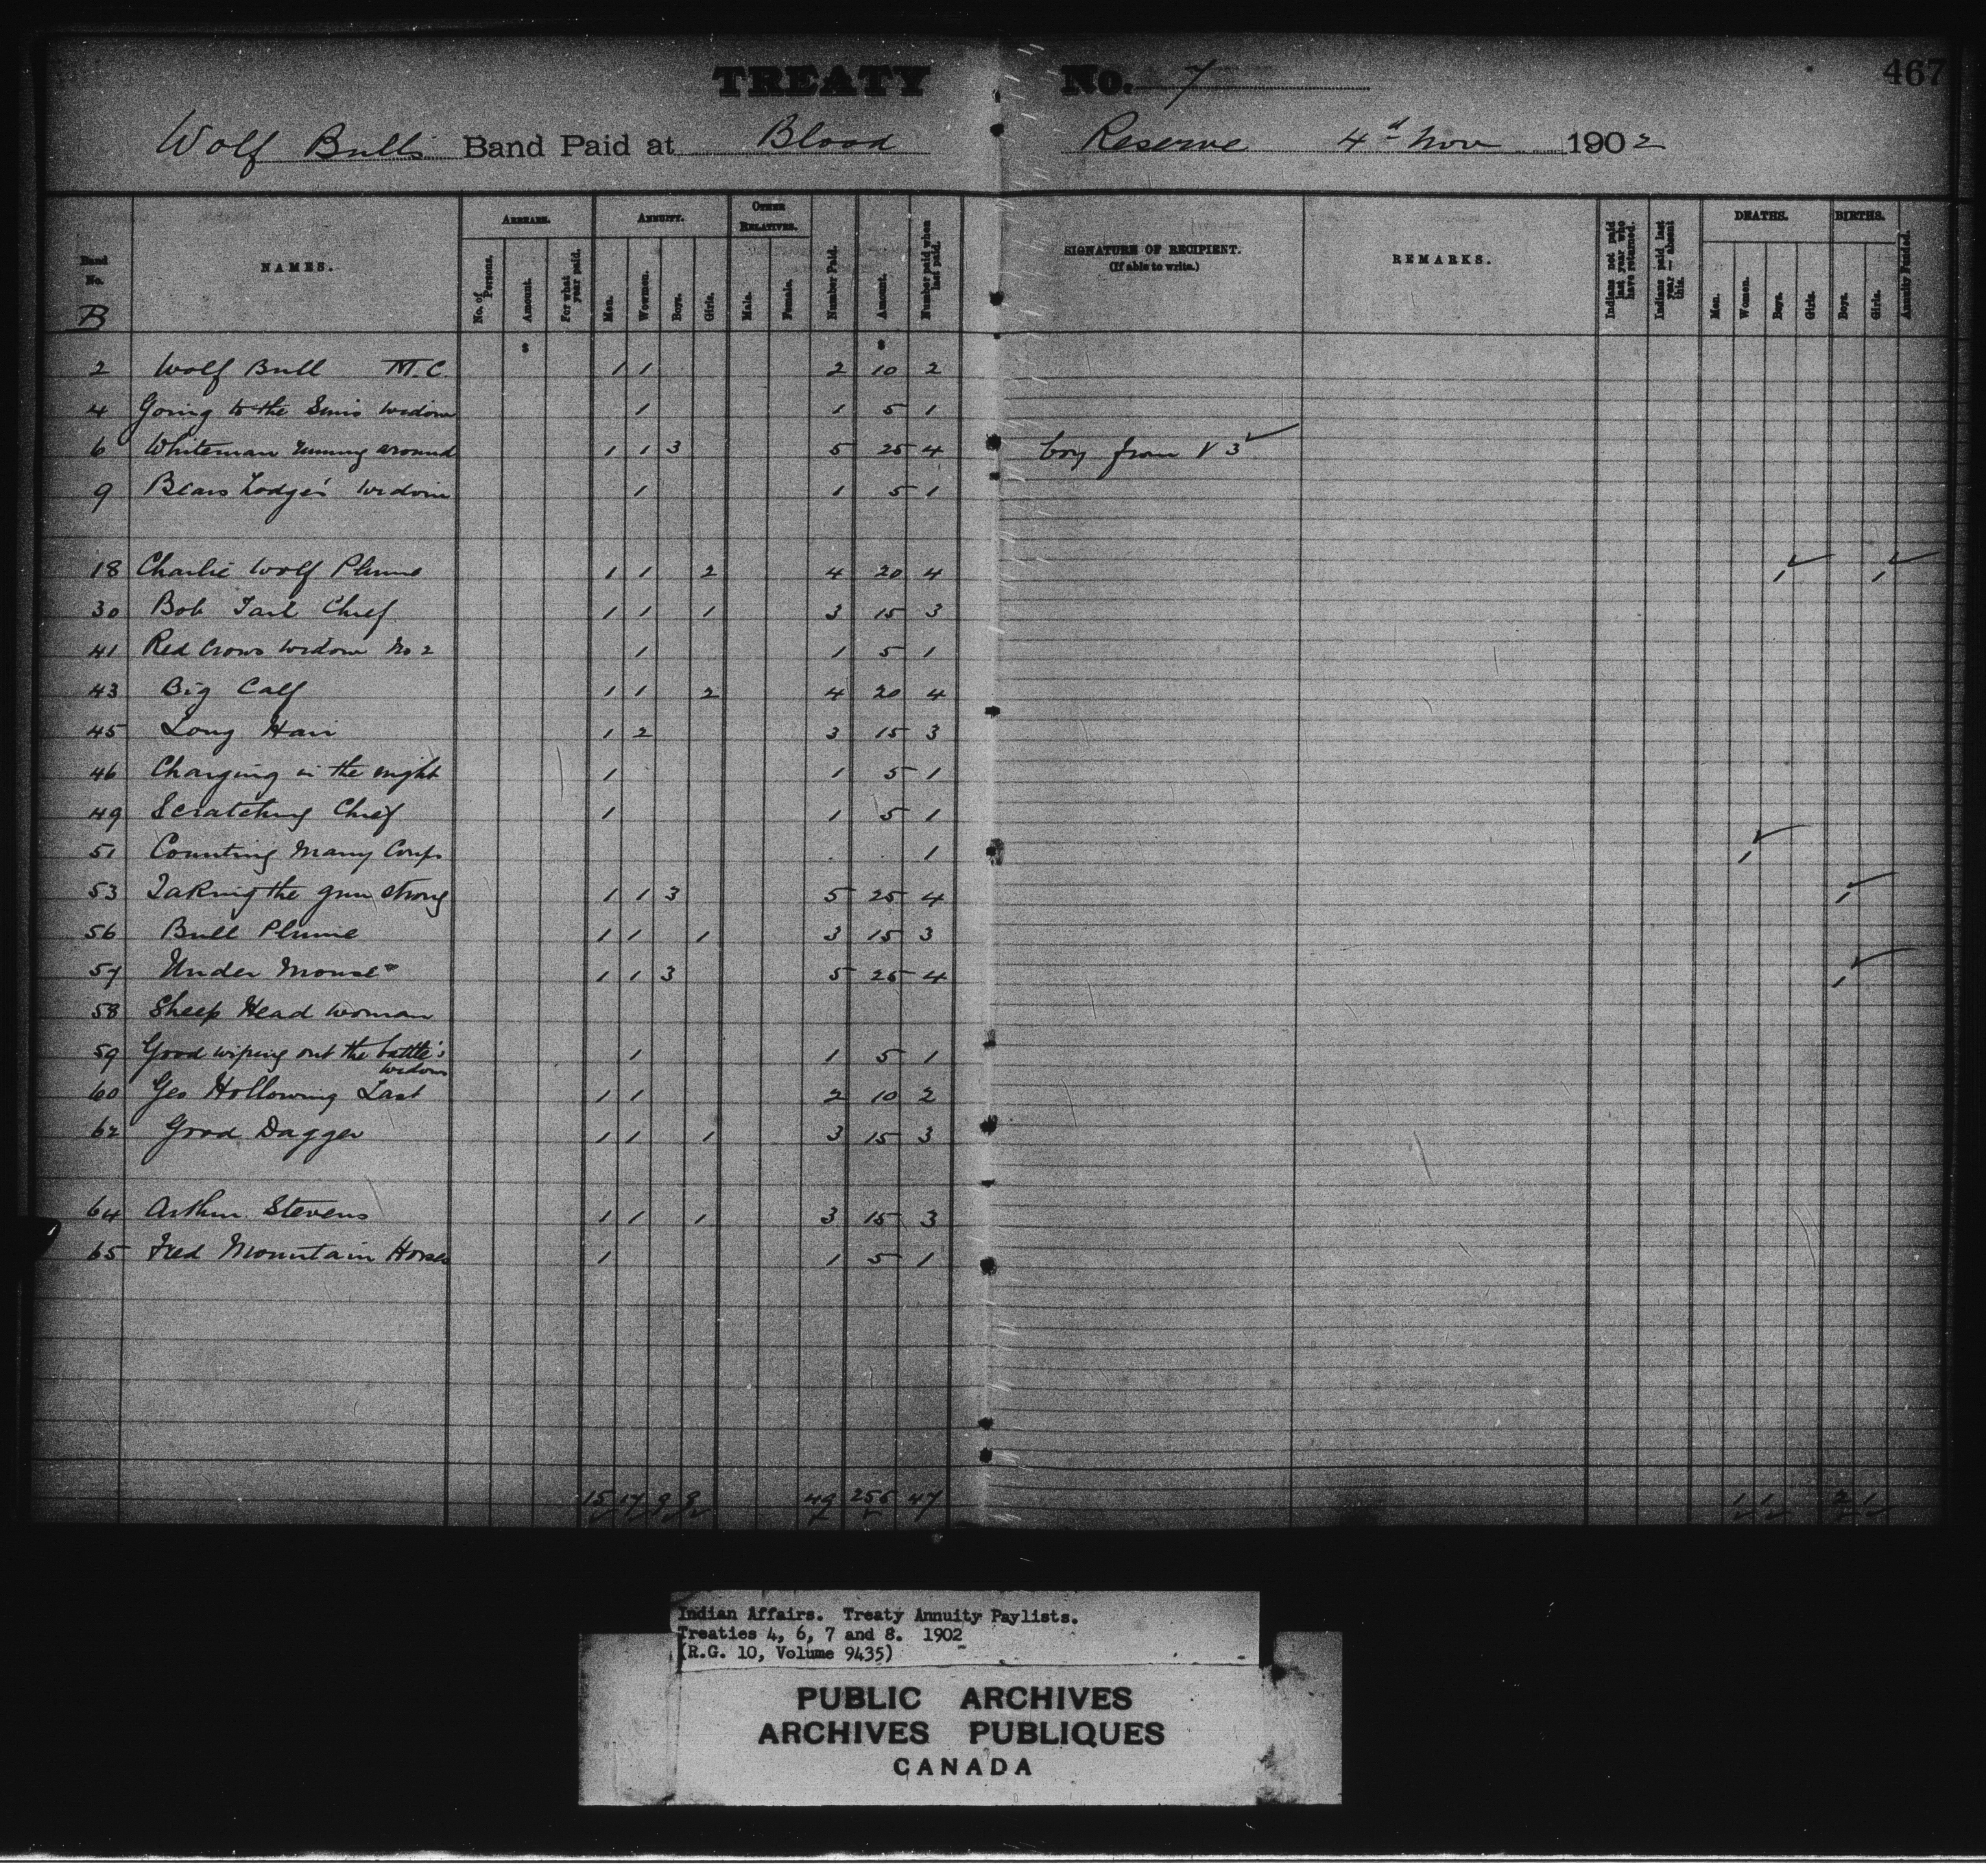 TREATY No. 7 467
Wolf Bull's Band Paid at Blood Reserve 4th Nov 1902
Band No. NAMES. ARREARS. ANNUITY. OTHER RELATIVES. Number Paid. Amount. Number paid when last paid. SIGNATURE OF RECIPIENT. (If able to write.) REMARKS. Indians not paid last year who have returned. Indians paid last year — absent this. DEATHS. BIRTHS. Annuity Funded.
No. of Persons. Amount. For what year paid. Men. Women. Boys. Girls. Male. Female. Men. Women. Boys. Girls. Boys. Girls.
B
$ $
2 Wolf Bull M.C. 1 1 2 10 2
4 Going to the Sun's widow 1 1 5 1
6 Whiteman running around 1 1 3 5 25 4 boy from V 3 ✓
9 Bears Lodge's widow 1 1 5 1
18 Charlie Wolf Plume 1 1 2 4 20 4 1 ✓ 1 ✓
30 Bob Tail Chief 1 1 1 3 15 3
41 Red Crows widow No 2 1 1 5 1
43 Big Calf 1 1 2 4 20 4
45 Long Hair 1 2 3 15 3
46 Charging in the night 1 1 5 1
49 Scratching Chief 1 1 5 1
51 Counting Many Coups 1 1 ✓
53 Taking the gun strong 1 1 3 5 25 4 1 ✓
56 Bull Plume 1 1 1 3 15 3
57 Under Mouse 1 1 3 5 25 4 1 ✓
58 Sheep Head woman
59 Good wiping out the battle's 1 1 5 1
widow
60 Geo Hollowing Last 1 1 2 10 2
62 Good Dagger 1 1 1 3 15 3
64 Arthur Stevens 1 1 1 3 15 3
65 Fred Mountain Horse 1 1 5 1
15 17 9 8 49 47 1 1 2 1
Indian Affairs. Treaty Annuity Paylists.
Treaties 4, 6, 7 and 8. 1902
(R.G. 10, Volume 9435)
PUBLIC ARCHIVES
ARCHIVES PUBLIQUES
CANADA